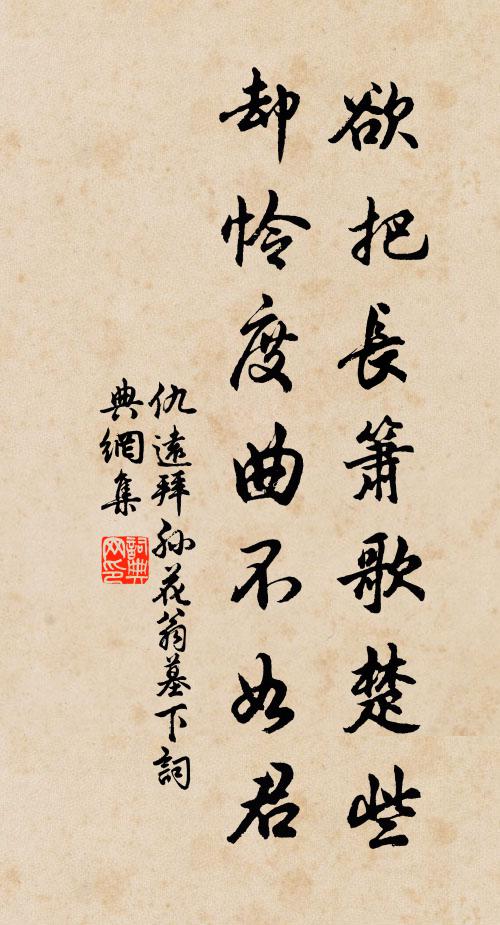 欲把長簫歌楚些
却憐度曲不如君
仇遠拜孫花翁墓下詞
典網集
詞典網印